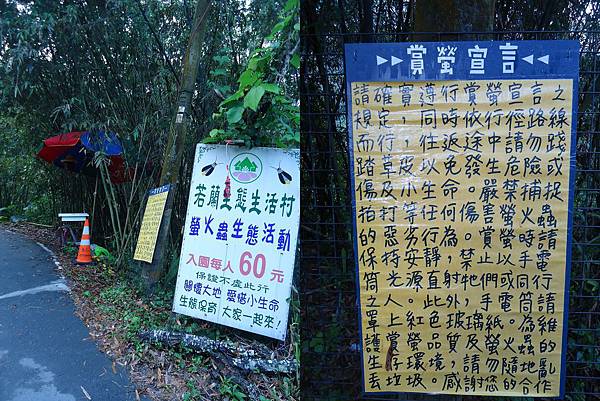 若蘭生態生活村
螢火蟲生態活動
入園每人60元
保證不虛此行
關懷大地 愛惜小生命
生態保育 大家一起來!
賞螢宣言
請確實遵行賞螢宣言之
規定,同時依行徑路線
而行,往返途中請勿踐
踏草皮以免發生危險或
傷及小生命。嚴禁捕捉
拍打等任何傷害螢火蟲
的惡劣行為。賞螢時請
保持安靜,禁止以手電
筒光源直射牠們或同行
之人。此外,手電筒請
罩上紅色玻璃紙。為維
護賞螢品質及螢火蟲
生存環境,請勿隨地亂
丟垃圾。感謝您的合作